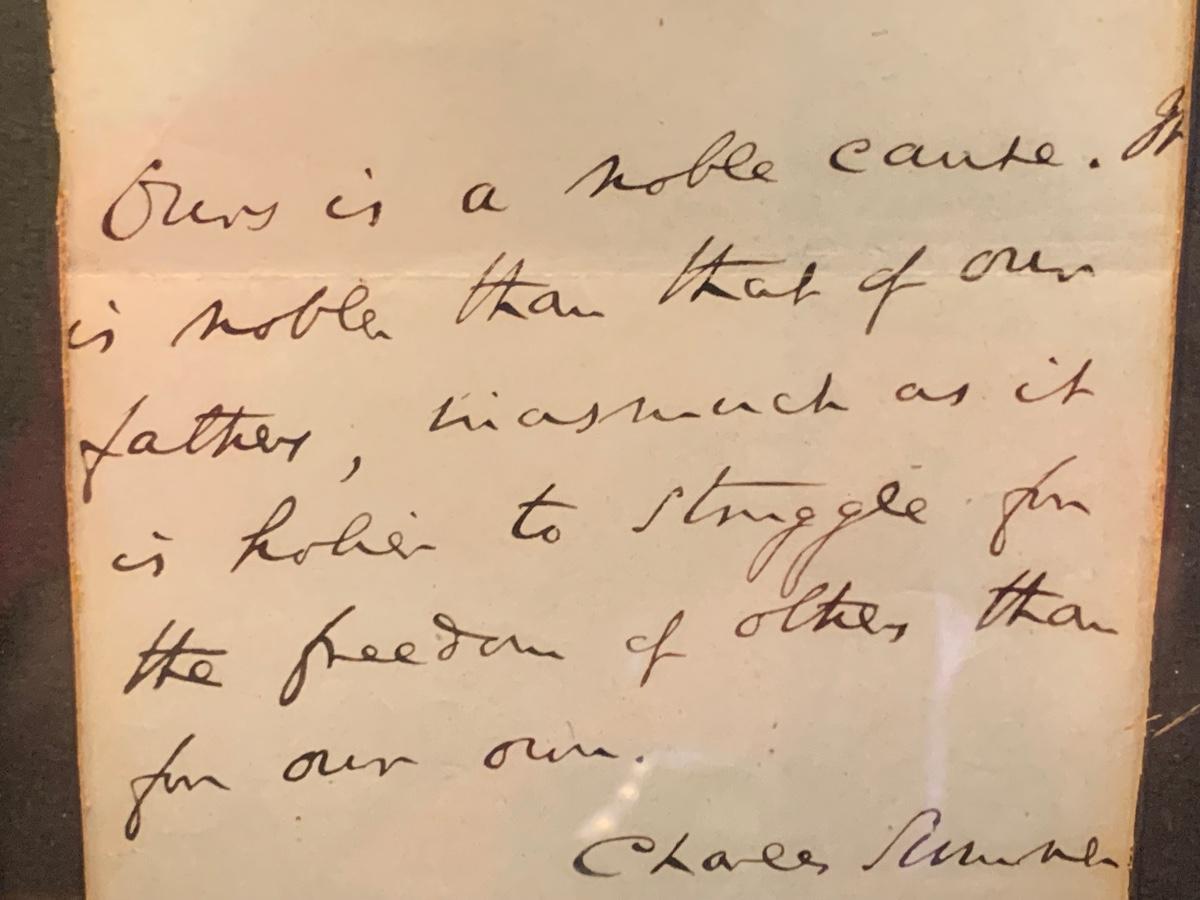 Ours is a noble cause. It
is nobler than that of our
fathers, inasmuch as it
is holier to struggle for
the freedom of others than
for our own.
Charles Sumner